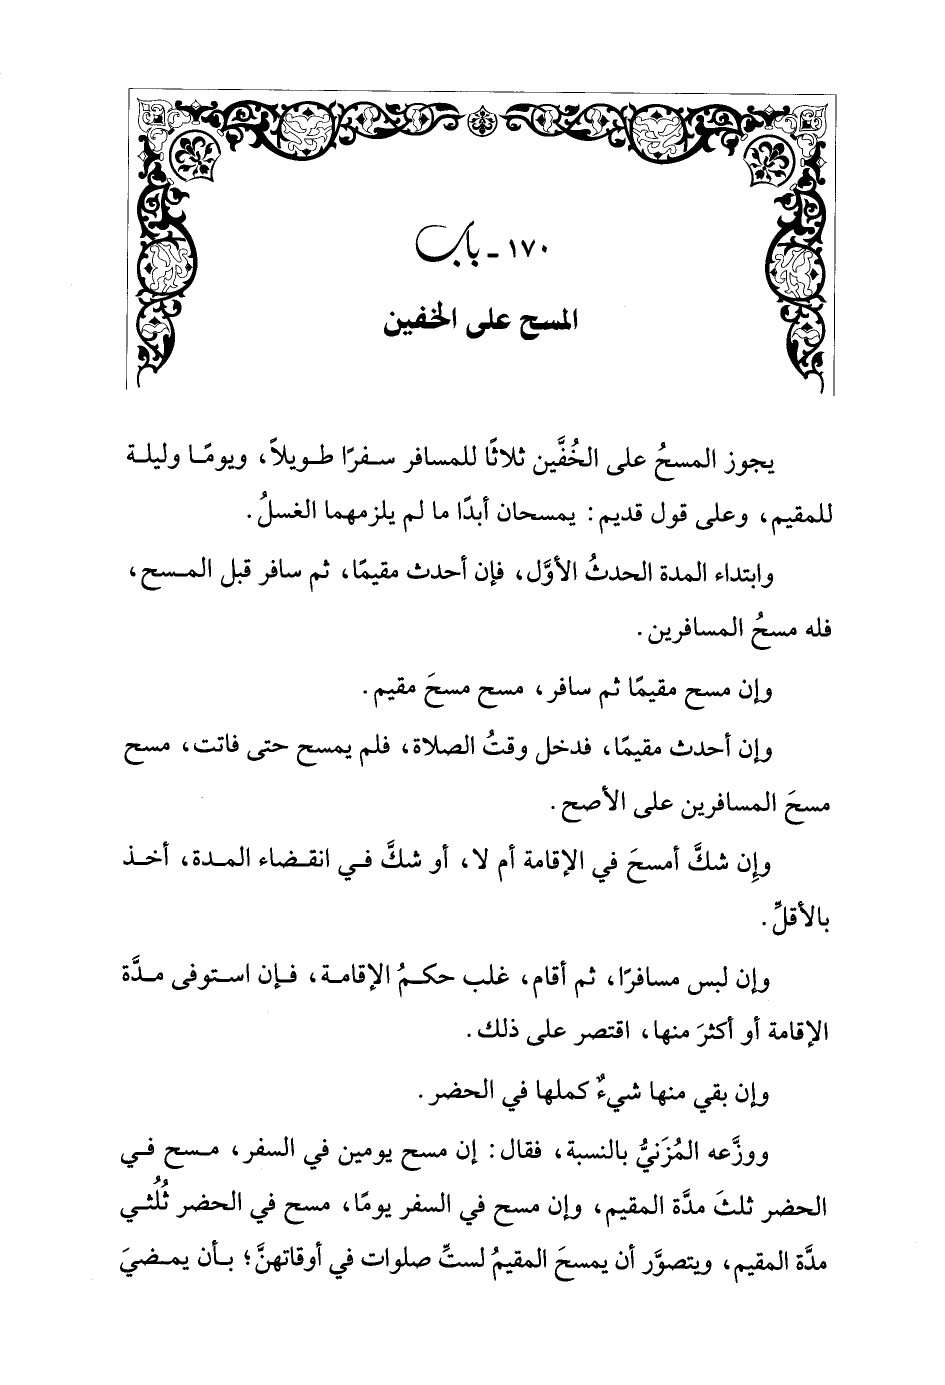 ١٧٠ - باب
المسح على الخفين
يجوز المسحُ على الخُفَّين ثلاثًا للمسافر سفرًا طويلاً، ويومًا وليلة
للمقيم، وعلى قول قديم: يمسحان أبدًا ما لم يلزمهما الغسلُ.
وابتداء المدة الحدثُ الأوَّل، فإن أحدث مقيمًا، ثم سافر قبل المسح،
فله مسحُ المسافرين.
وإن مسح مقيمًا ثم سافر، مسح مسحَ مقيم.
وإن أحدث مقيمًا، فدخل وقتُ الصلاة، فلم يمسح حتى فاتت، مسح
مسحَ المسافرين على الأصح.
وإِن شكَّ أمسحَ في الإقامة أم لا، أو شكَّ في انقضاء المدة، أخذ
بالأقلِّ.
وإن لبس مسافرًا، ثم أقام، غلب حكمُ الإقامة، فإن استوفى مدَّة
الإقامة أو أكثرَ منها، اقتصر على ذلك.
وإن بقي منها شيءٌ كملها في الحضر.
ووزَّعه المُزَنيُّ بالنسبة، فقال: إن مسح يومين في السفر، مسح في
الحضر ثلثَ مدَّة المقيم، وإن مسح في السفر يومًا، مسح في الحضر ثُلُثي
مدَّة المقيم، ويتصوَّر أن يمسحَ المقيمُ لستِّ صلوات في أوقاتهنَّ؛ بأن يمضيَ